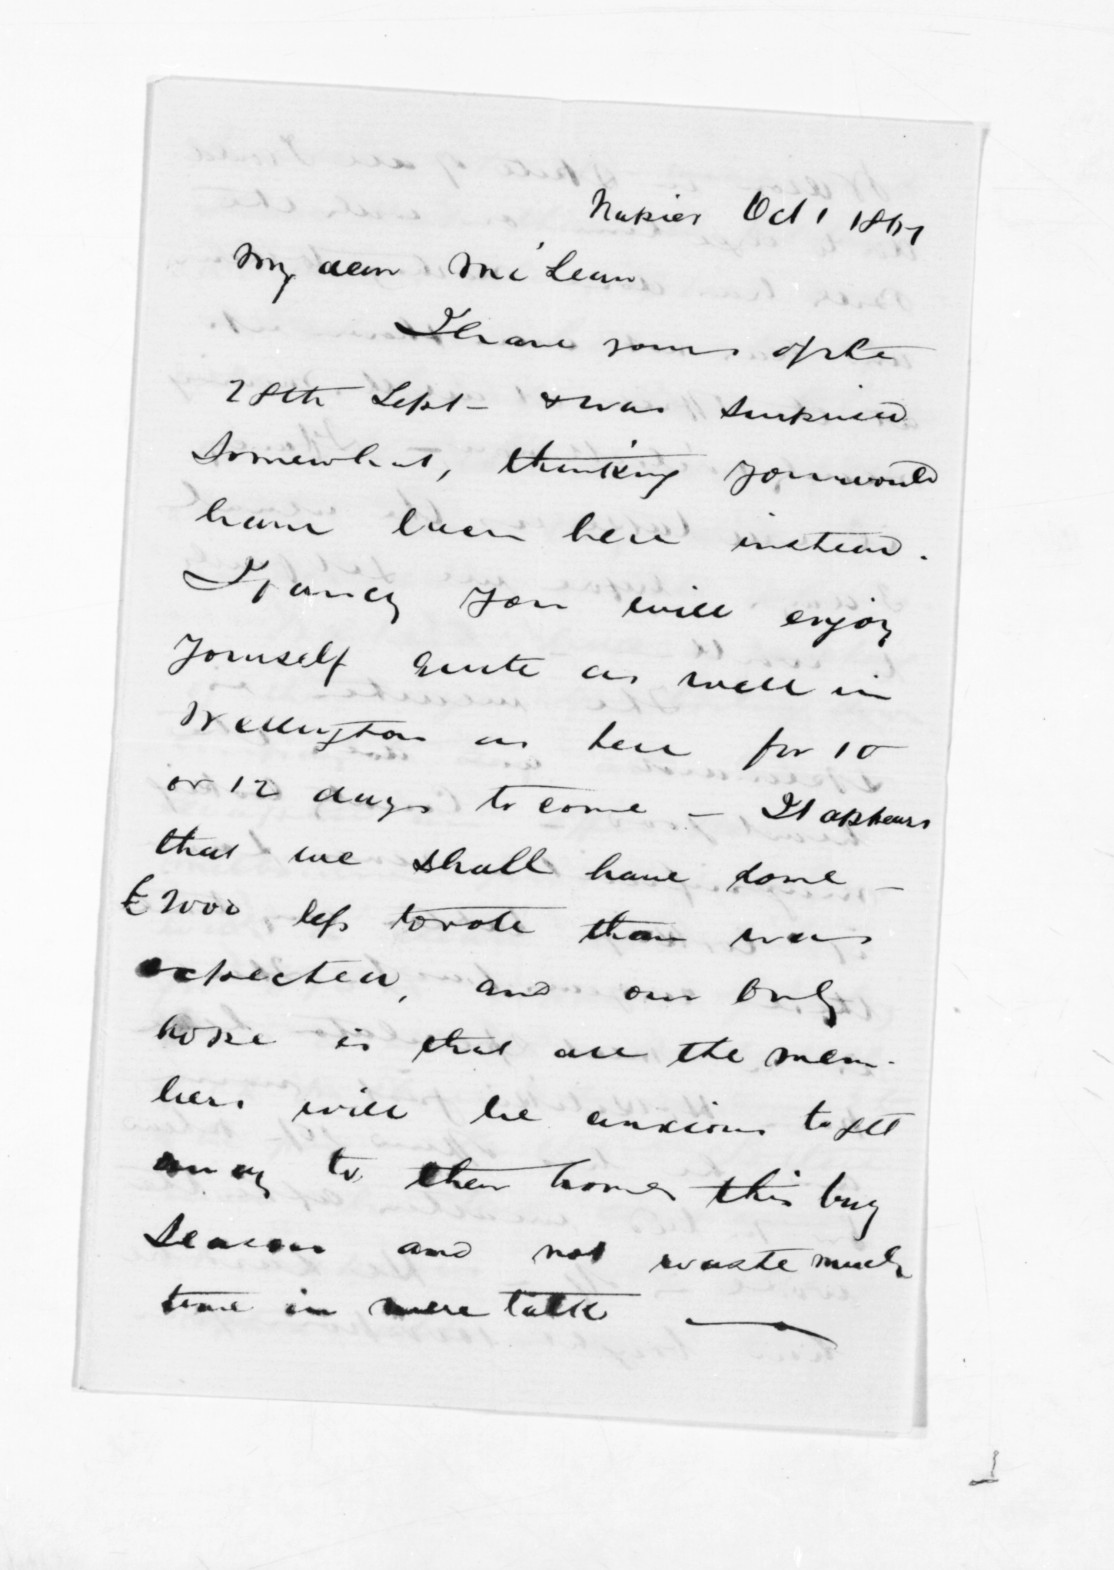 Napier Oct 1 1867
My dear McLean
I have yours of the
28th Sept - & was surprised
somewhat, thinking you would
have been here instead.
I fancy you will enjoy
yourself quite as well in
Wellington as here for 10
or 12 days to come - It appears
that we shall have some -
£2000 less to vote than was
expected, and our only
hope is that all the mem-
bers will be anxious to get
away to their homes this busy
season and not waste much
time in mere talk —
1